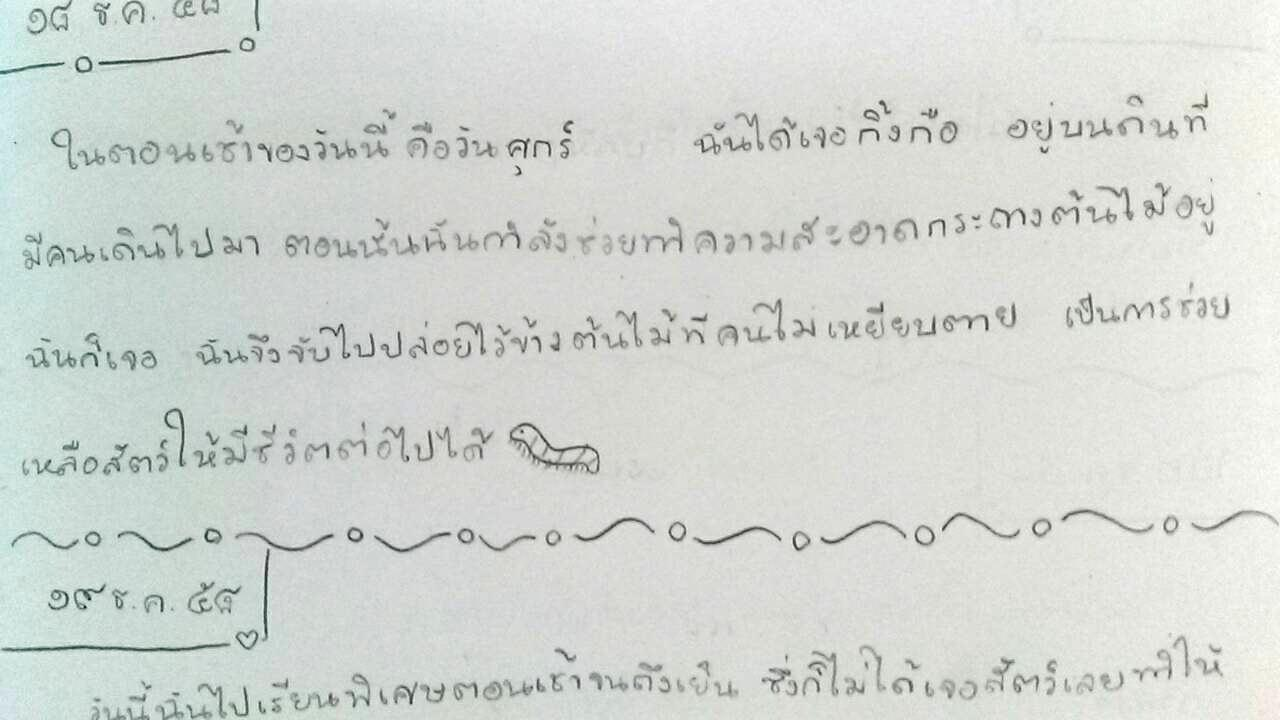 ๑๘ ธ.ค. ๕๘
ในตอนเช้าของวันนี้ คือวันศุกร์ ฉันได้เจอกิ้งกือ อยู่บนดินที่
มีคนเดินไปมา ตอนนั้นฉันกำลังช่วยทำความสะอาดกระถางต้นไม้อยู่
ฉันก็เจอ ฉันจึงจับไปปล่อยไว้ข้างต้นไม้ที่คนไม่เหยียบตาย เป็นการช่วย
เหลือสัตว์ให้มีชีวิตต่อไปได้
๑๙ ธ.ค. ๕๘
วันนี้ฉันไปเรียนพิเศษตอนเช้าจนถึงเย็น ซึ่งก็ไม่ได้เจอสัตว์เลยทำให้